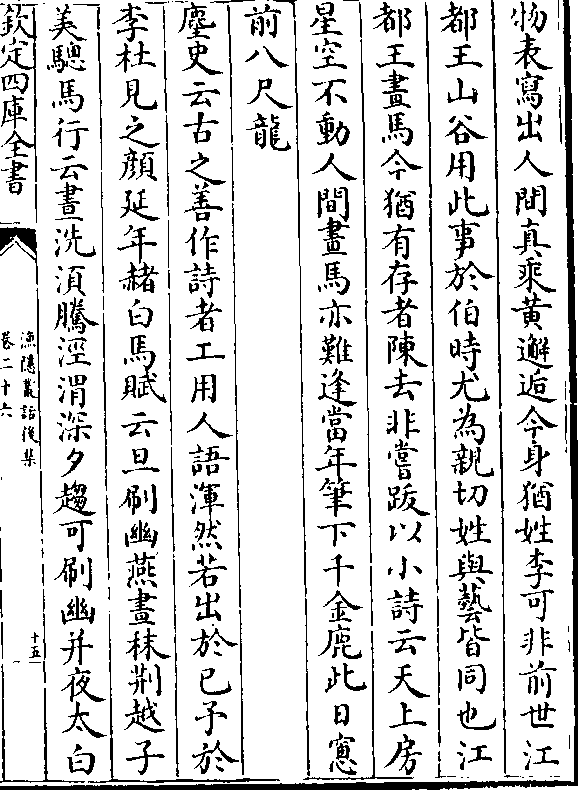 物表寫出人間真乘黃邂逅今身猶姓李可非前世江
都王山谷用此事於伯時尤為親切姓與藝皆同也江
都王畫馬今猶有存者陳去非嘗跋以小詩云天上房
星空不動人間畫馬亦難逢當年筆下千金鹿此日窻
前八尺龍
麈史云古之善作詩者工用人語渾然若出於已予於
李杜見之顔延年赭白馬賦云旦刷幽燕晝秣荆越子
美驄馬行云晝洗湏騰涇渭深夕趨可刷幽并夜太白
欽定四庫全書
漁隱叢話後集
卷二十六
十五